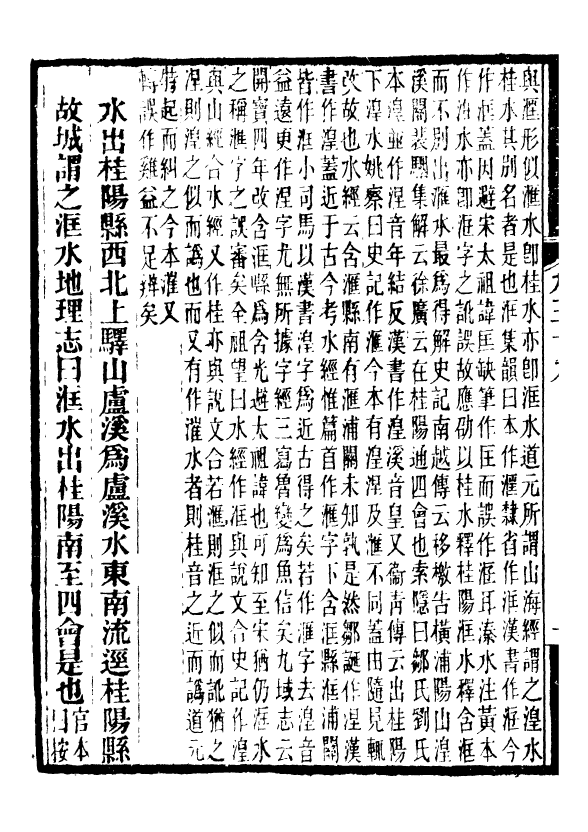 與滙形似滙水卽桂水亦卽洭水道元所謂山海經謂之湟水
桂水其別名者是也洭集韻曰本作𣿠隸省作洭漢書作洭今
作洭蓋因避宋太祖諱匡缺筆作匩而誤作洭耳溱水注黃本
作洭水亦卽洭字之訛誤故應劭以桂水釋桂陽洭水釋含洭
而不別出滙水最爲得解史記南越傳云移檄告橫浦陽山湟
溪關裴駰集解云徐廣云在桂陽通四會也索隱曰鄒氏劉氏
本湟並作涅音年結反漢書作湟溪音皇又衞靑傳云出桂陽
下湟水姚察曰史記作滙今本有湟涅及滙不同蓋由隨見輒
改故也水經云含滙縣南有滙浦關未知孰是然鄒誕作涅漢
書作湟蓋近于古今考水經惟篇首作滙字下含洭縣洭浦關
皆作洭小司馬以漢書湟字爲近古得之矣若作滙字去湟音
益遠更作涅字尤無所據字經三寫魯變爲魚信矣九域志云
開寶四年改含洭縣爲含光避太祖諱也可知至宋猶仍洭水
之稱滙字之誤審矣全祖望曰水經作洭與說文合史記作湟
與山經合水經又作桂亦與說文合若滙則洭之似而訛猶之
涅則湟之似而譌也而又有作漼水者則桂音之近而譌道元
特起而糾之今本漼又
轉誤作雞益不足辨矣
水出桂陽縣西北上驛山盧溪爲盧溪水東南流逕桂陽縣
故城謂之洭水地理志曰洭水出桂陽南至四會是也官本
曰按